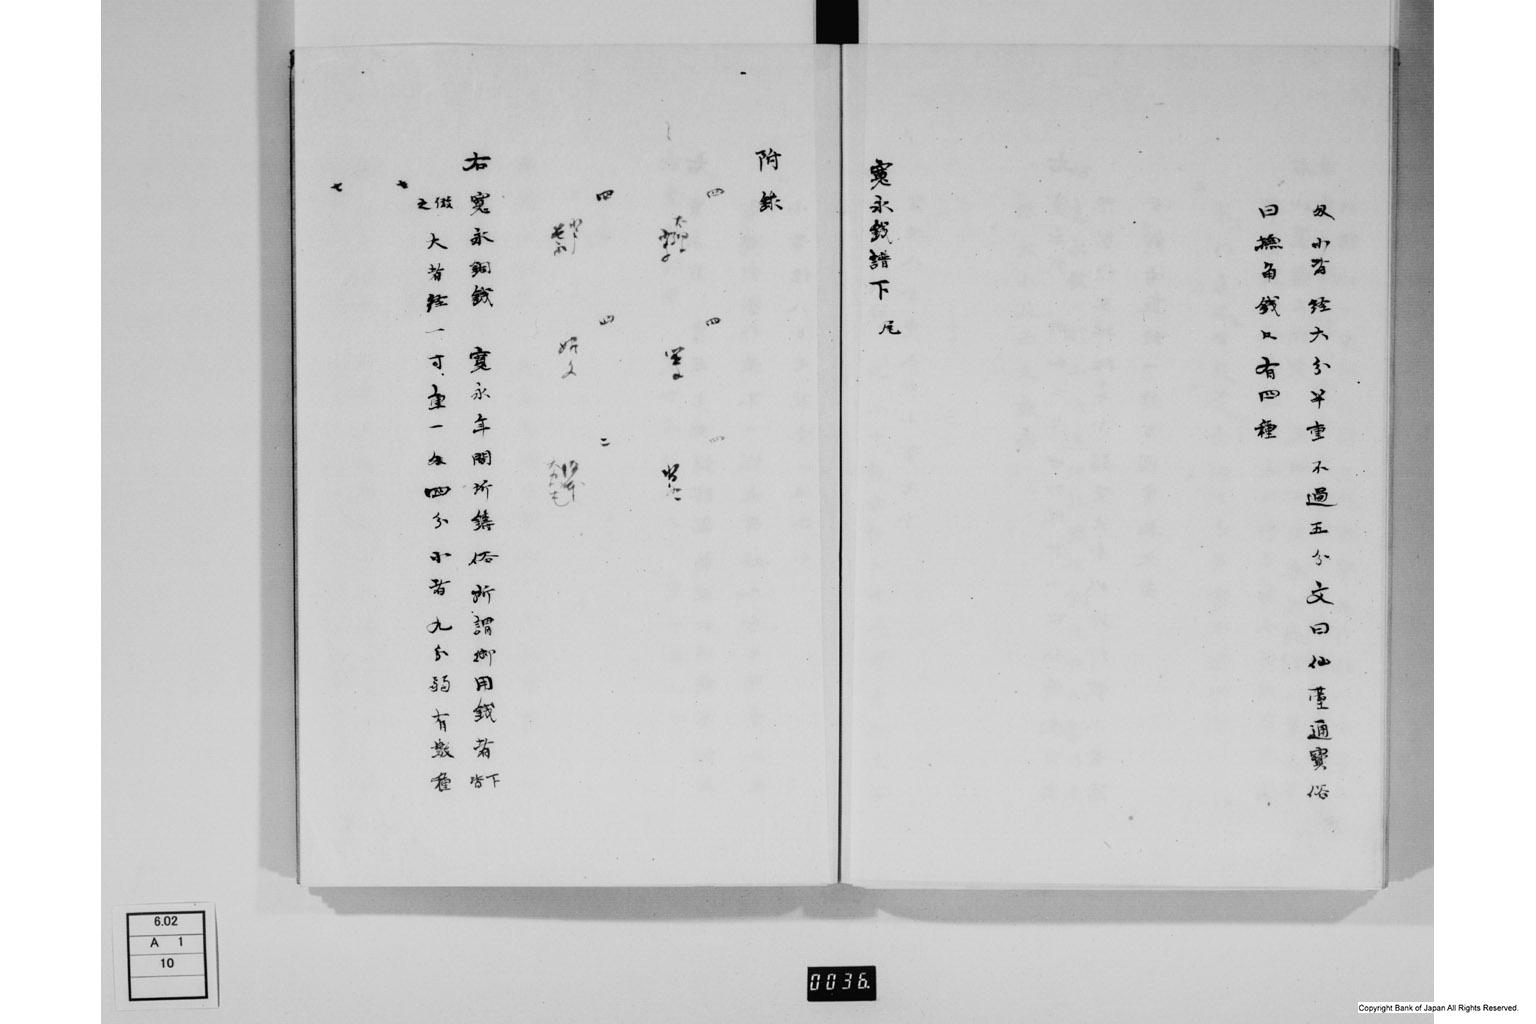 匁小者経六分半重不過五分文曰仙臺通寳俗
曰撫角銭只有四種
寛永銭譜下尾
附録
四
四
四
四
二
右寛永銅銭 寛永年間所鋳俗所謂御用銭者下皆
倣之大者経一寸重一匁四分小者九分弱有数種
七
七
6.02
A 1
10
0036
Copyright Bank of Japan All Rights Reserved.